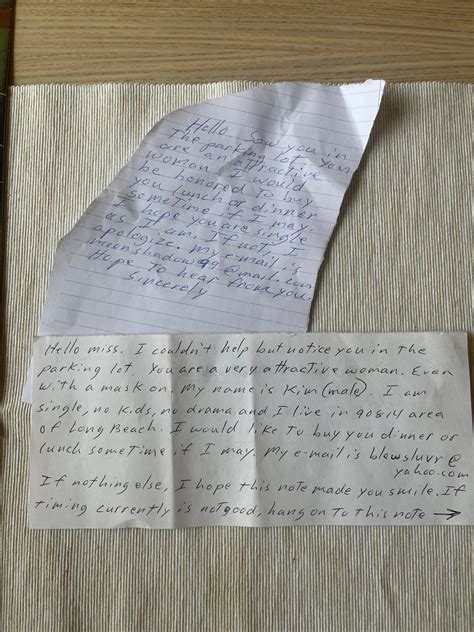 Hello Saw you in
The parking lot. You
are an attractive
woman. I would
be honored to buy
you lunch or dinner
sometime if I may.
I hope you are single
as I am. If not, I
apologize. My e-mail is
moonshadow99@mail.com
Hope to hear from you.
Sincerely
Hello miss. I couldn't help but notice you in The
parking lot. You are a very attractive woman. Even
with a mask on. My name is Kim (male). I am
single, no kids, no drama and I live in 90814 area
of Long Beach. I would like To buy you dinner or
lunch someTime if I may. My e-mail is blewsluvr@
yahoo.com
If nothing else, I hope this note made you smile. If
timing currently is not good, hang on To this note →